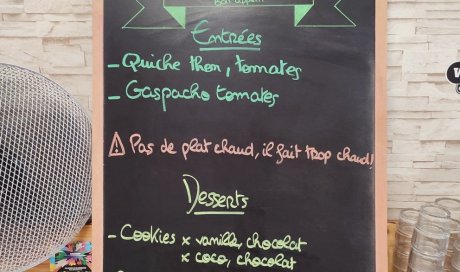 Bon appétit
Entrées
- Quiche thon, tomates
- Gaspacho tomates
⚠ Pas de plat chaud, il fait trop chaud!
Desserts
- Cookies x vanille, chocolat
x coco, chocolat